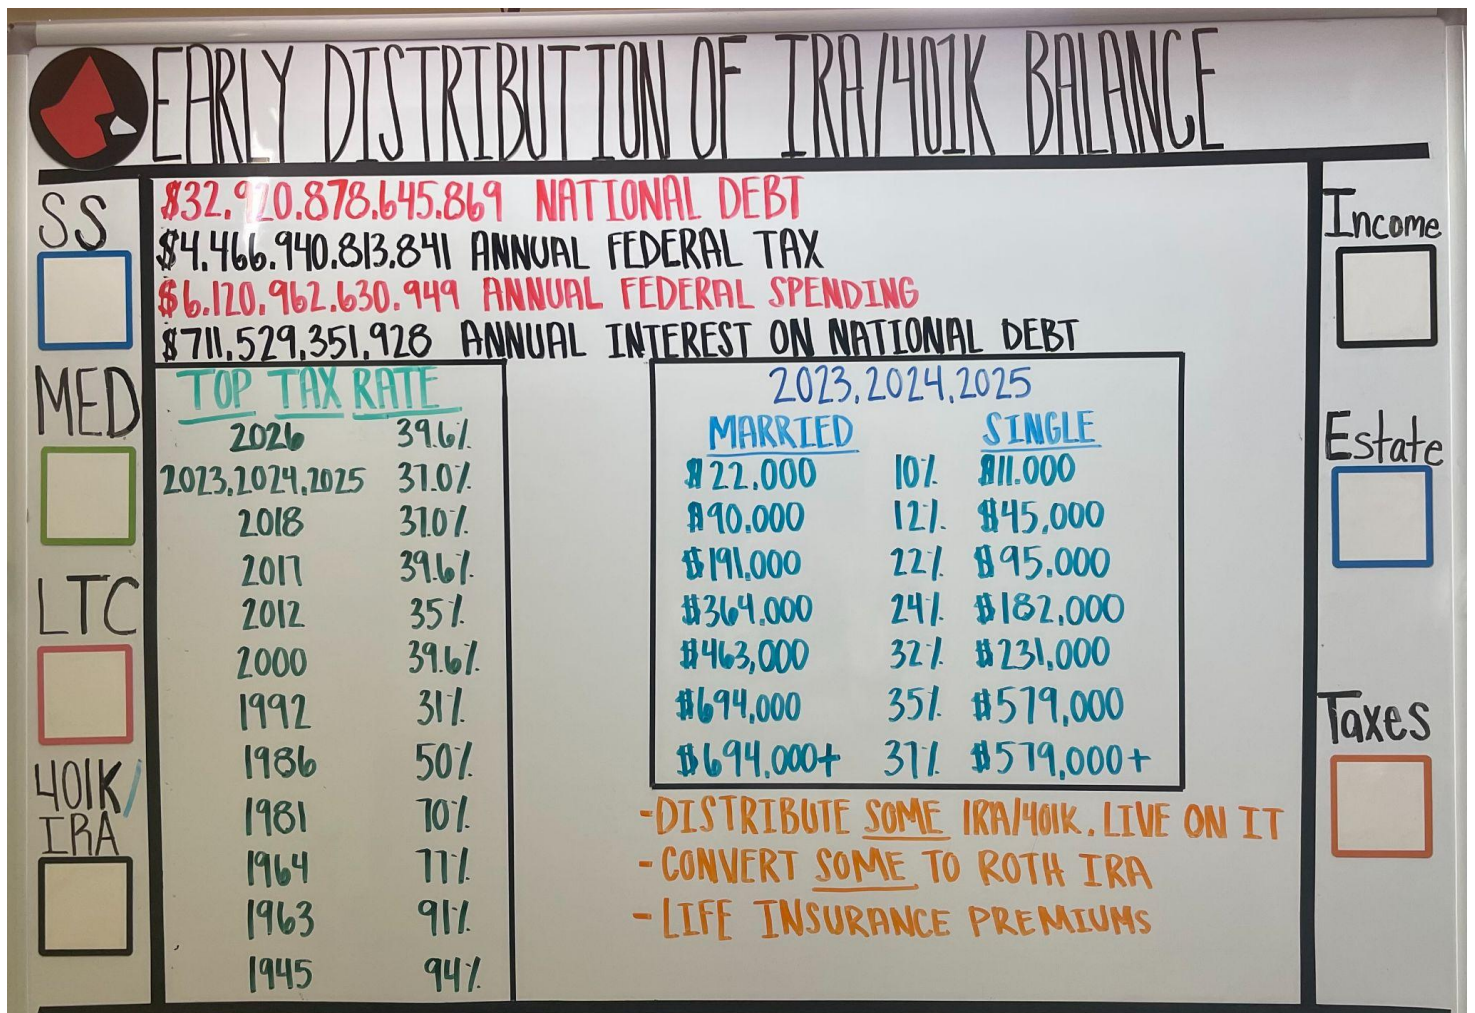 EARLY DISTRIBUTION OF IRA/401K BALANCE
SS
MED
LTC
401K/
IRA
$32.920.878.645.869 NATIONAL DEBT
$4.466.940.813.841 ANNUAL FEDERAL TAX
$6.120.962.630.949 ANNUAL FEDERAL SPENDING
$711,529,351,928 ANNUAL INTEREST ON NATIONAL DEBT
TOP TAX RATE
2026 39.6%
2023,2024,2025 37.0%
2018 37.0%
2017 39.6%
2012 35%
2000 39.6%
1992 31%
1986 50%
1981 70%
1964 77%
1963 91%
1945 94%
2023,2024,2025
MARRIED SINGLE
$22,000 10% $11.000
$90.000 12% $45,000
$191,000 22% $95.000
$364,000 24% $182,000
$463,000 32% $231,000
$694,000 35% $579,000
$694,000+ 37% $579,000+
-DISTRIBUTE SOME IRA/401K, LIVE ON IT
-CONVERT SOME TO ROTH IRA
-LIFE INSURANCE PREMIUMS
Income
Estate
Taxes